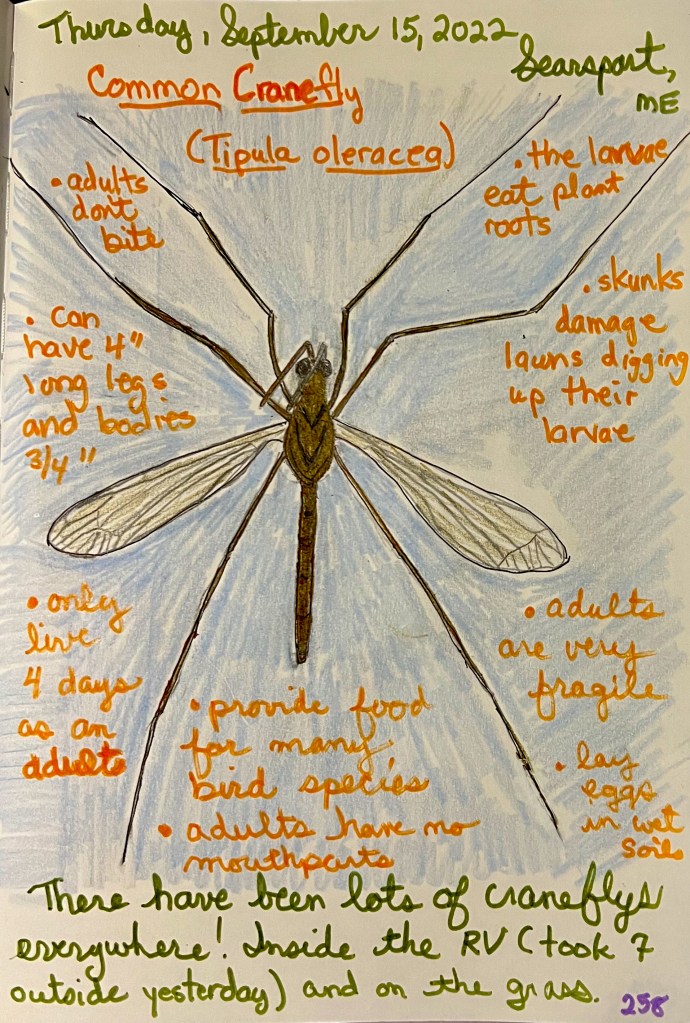 Thursday, September 15, 2022
Searsport,
ME
Common Cranefly
(Tipula oleracea)
• adults
dont
bite
• the larvae
eat plant
roots
• can
have 4"
long legs
and bodies
3/4"
• skunks
damage
lawns digging
up their
larvae
• only
live
4 days
as an
adult
• adults
are very
fragile
• provide food
for many
bird species
• adults have no
mouthparts
• lay
eggs
in wet
soils
There have been lots of craneflys
everywhere! Inside the RV (took 7
outside yesterday) and on the grass.
258